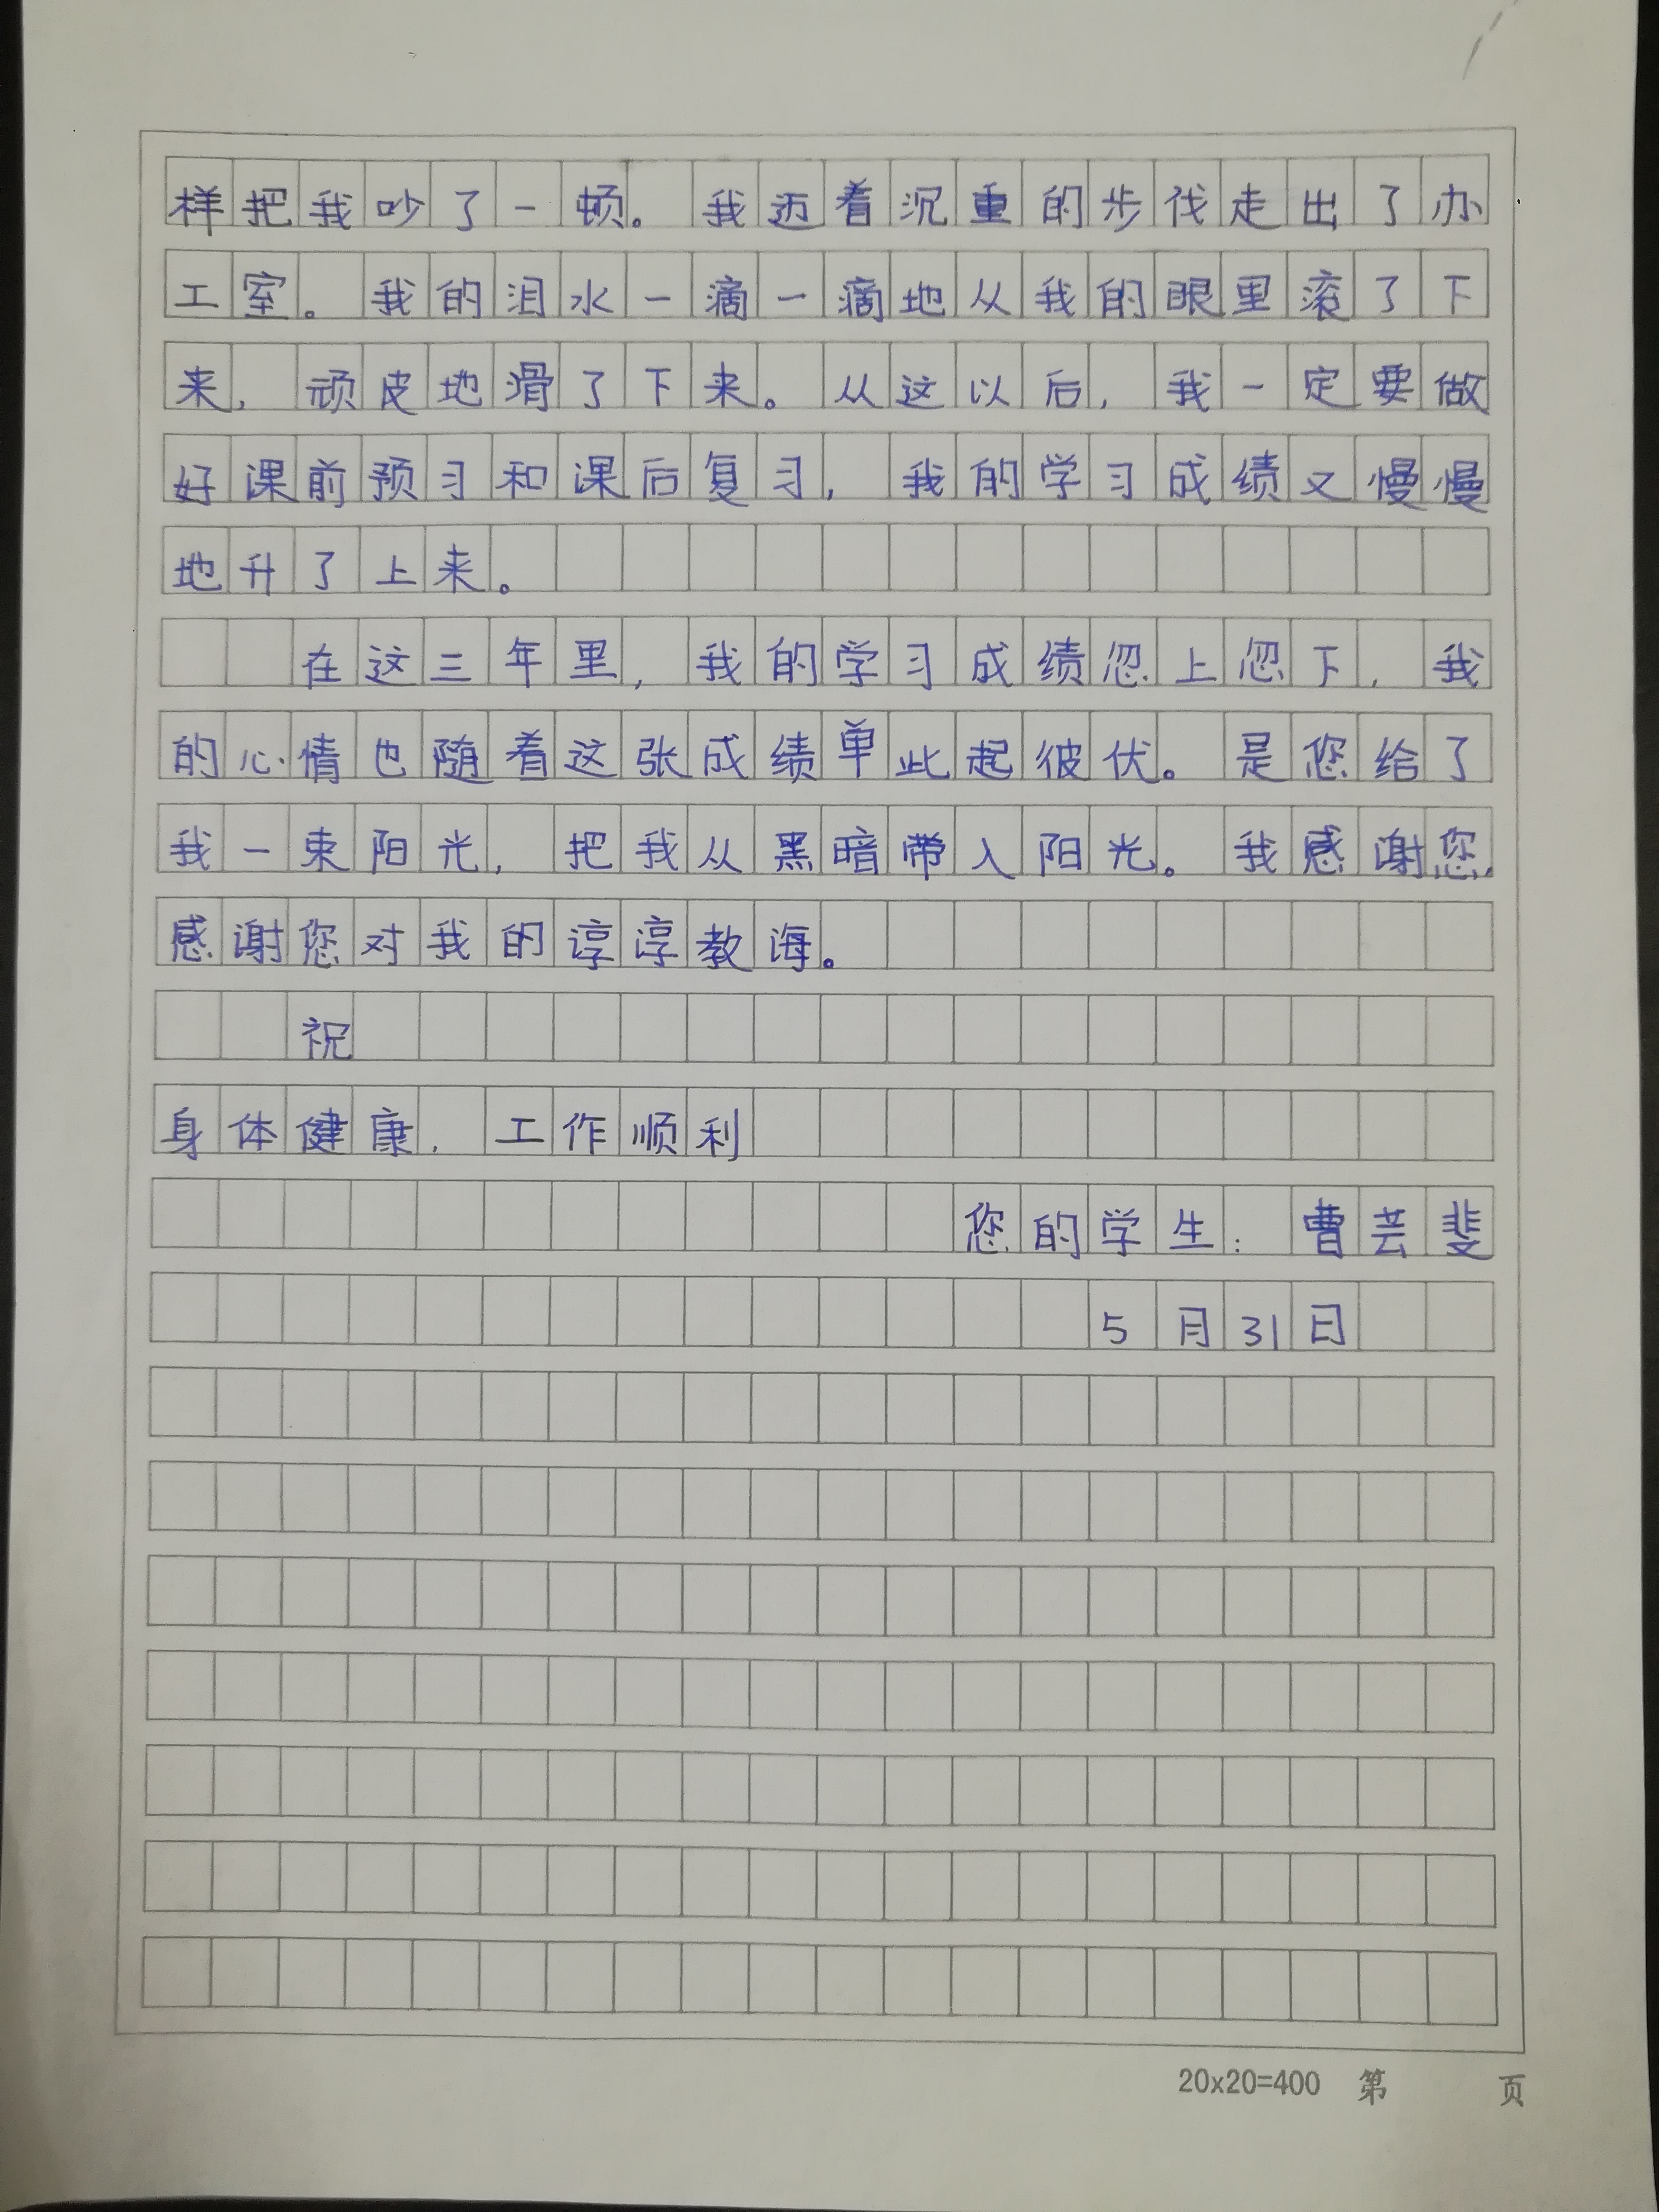 样把我吵了一顿。我迈着沉重的步伐走出了办
工室。我的泪水一滴一滴地从我的眼里滚了下
来，顽皮地滑了下来。从这以后，我一定要做
好课前预习和课后复习，我的学习成绩又慢慢
地升了上来。
在这三年里，我的学习成绩忽上忽下，我
的心情也随着这张成绩单此起彼伏。是您给了
我一束阳光，把我从黑暗带入阳光。我感谢您，
感谢您对我的谆谆教诲。
祝
身体健康，工作顺利
您的学生：曹芸斐
5月31日
20x20=400 第 页